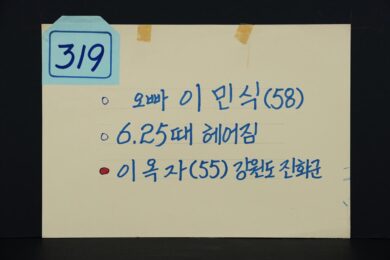 319
오빠 이민식(58)
6.25때 헤어짐
이옥자(55) 강원도 진화군